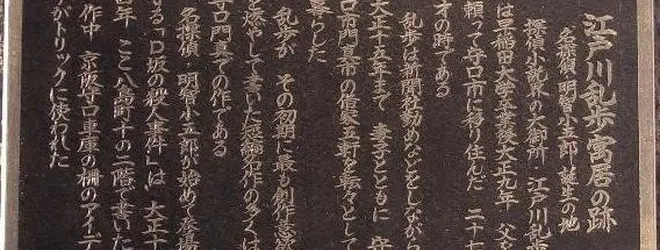 江戸川乱歩寓居の跡
名探偵・明智小五郎 誕生の地
探偵小説界の大御所・江戸川乱
は早稲田大学卒業後大正九年 父
頼って守口市に移り住んだ 二十
才の時である
乱歩は新聞社勤めなどをしながら
大正十五年まで 妻子とともに 守
口市門真市の借家五軒を転々として
暮らした
乱歩が その初期に最も創作意欲
を燃やして書いた短編名作の多くは
守口門真での作である
名探偵・明智小五郎が始めて登場
する「D坂の殺人事件」は 大正十
四年 ここ八島町十の二階で書いた
作中 京阪守口車庫の柵のアイデ
アがトリックに使われた